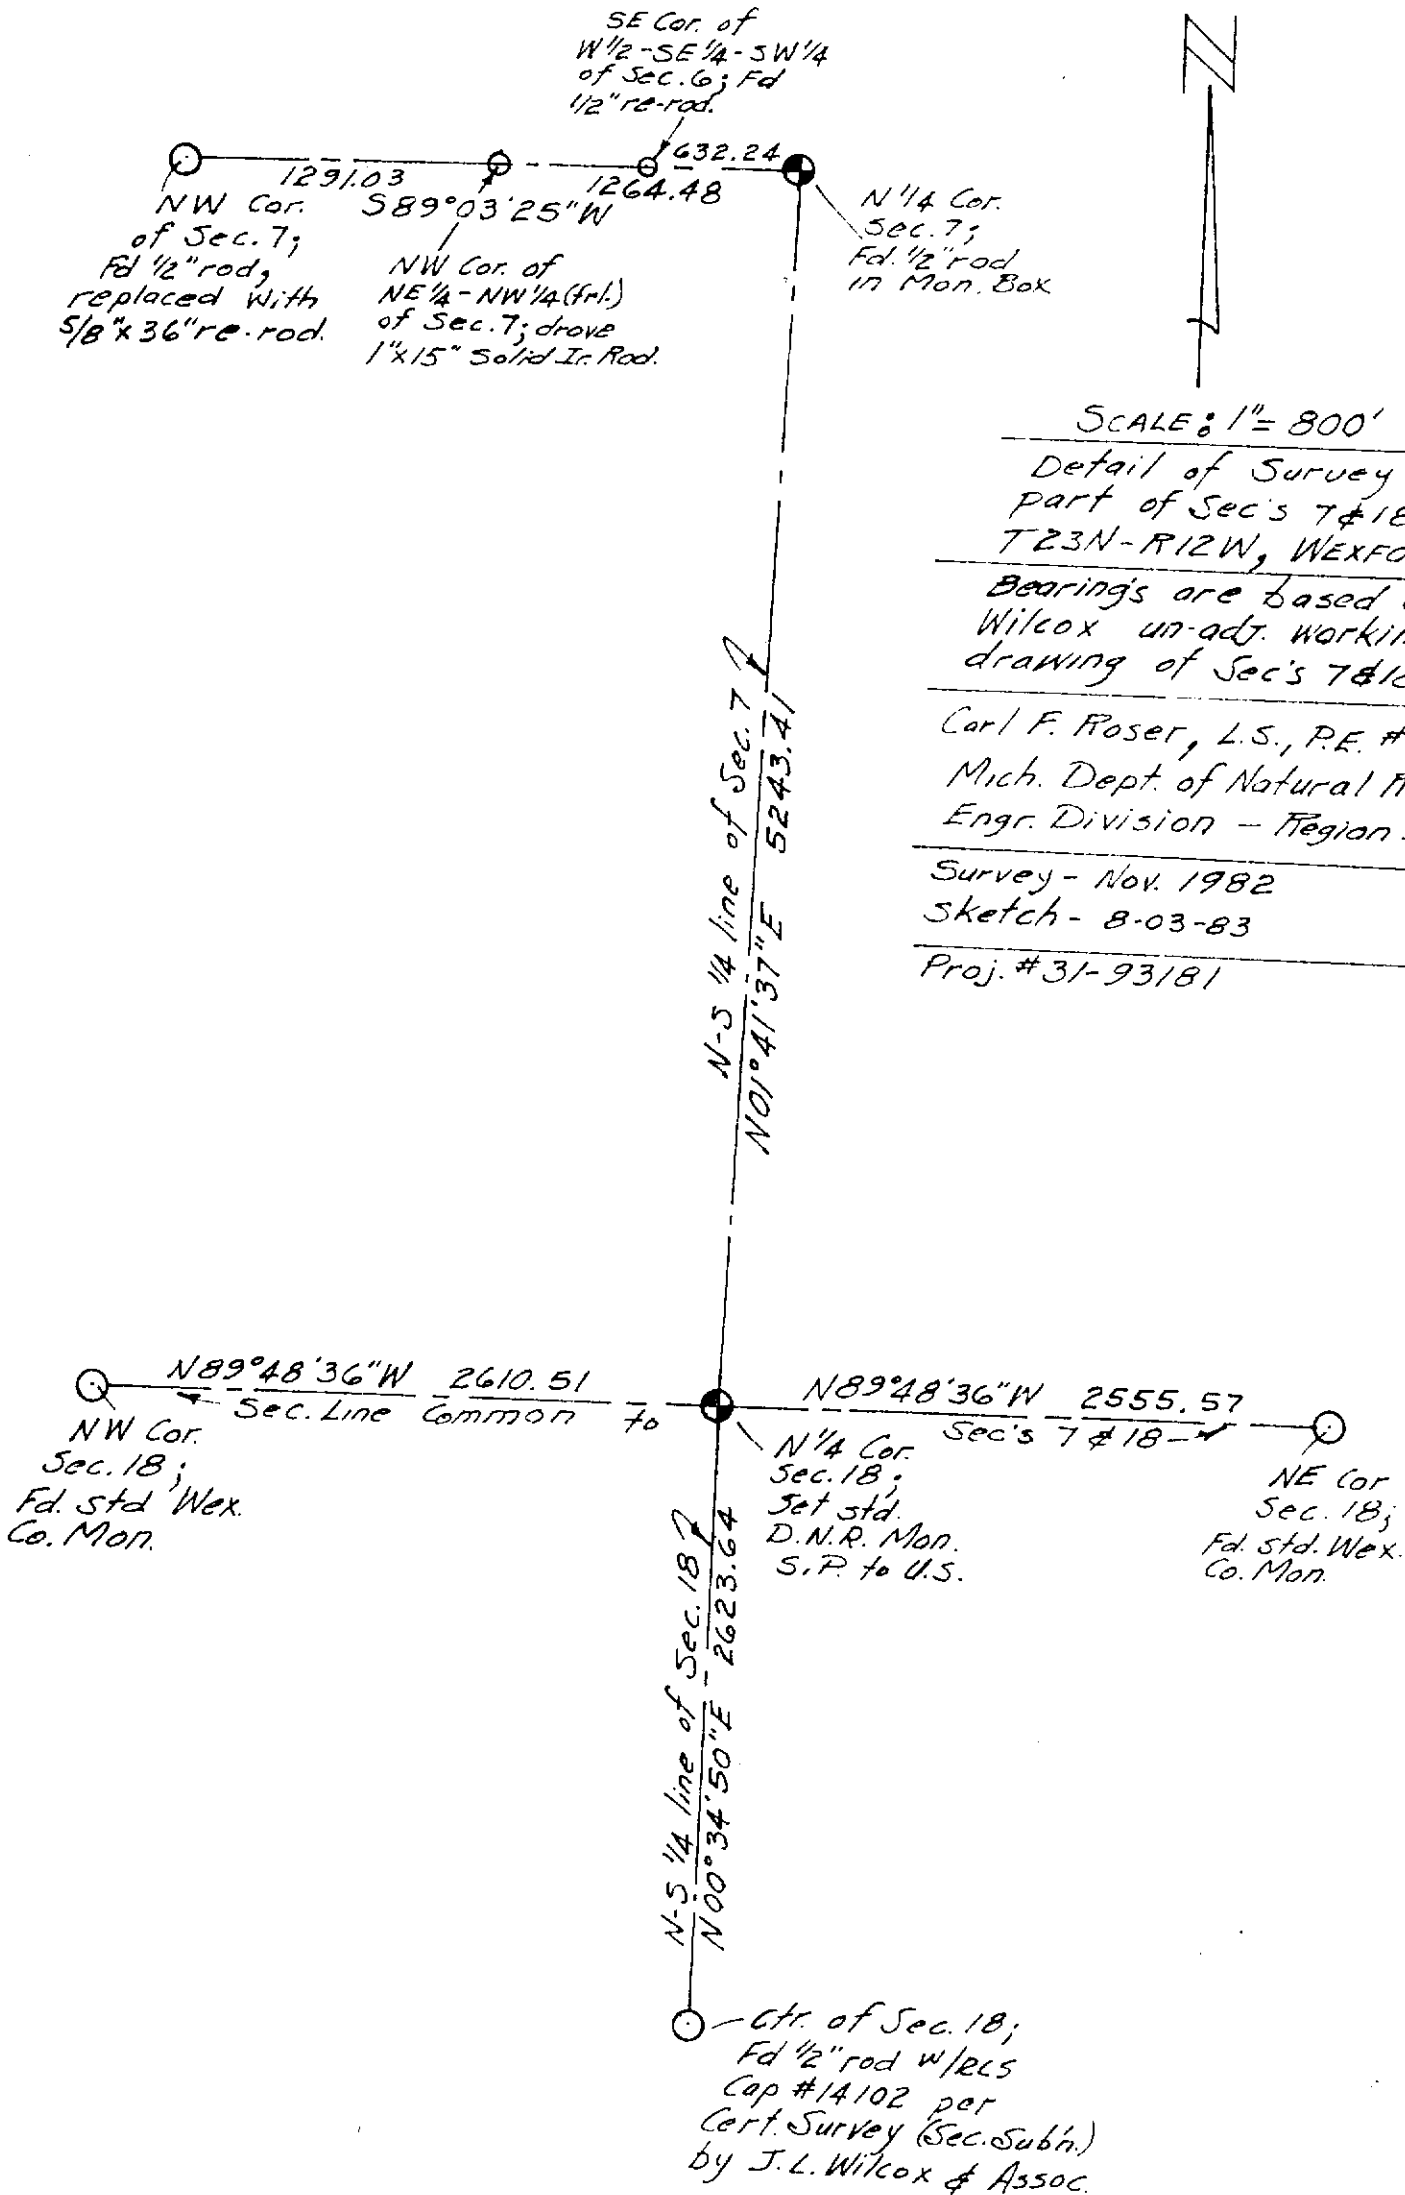 SE Cor. of
W 1/2 - SE 1/4 - SW 1/4
of Sec. 6; Fd
1/2" re-rod.
N
1291.03
S89°03'25"W
1264.48
632.24
NW Cor.
of Sec. 7;
Fd 1/2" rod,
replaced with
5/8" x 36" re-rod.
NW Cor. of
NE 1/4 - NW 1/4 (frl.)
of Sec. 7; drove
1" x 15" Solid Ir. Rod.
N 1/4 Cor.
Sec. 7;
Fd. 1/2" rod
in Mon. Box
SCALE: 1" = 800'
Detail of Survey
part of Sec's 7 & 18
T23N-R12W, WEXFO
Bearing's are based
Wilcox un-adj. workin
drawing of Sec's 7 & 18
Carl F. Roser, L.S., P.E. #
Mich. Dept. of Natural R
Engr. Division - Region
Survey - Nov. 1982
Sketch - 8-03-83
Proj. # 31-93181
N-S 1/4 line of Sec. 7
N01°41'37"E 5243.41
N89°48'36"W 2610.51
Sec. Line Common to
N89°48'36"W 2555.57
Sec's 7 & 18
NW Cor.
Sec. 18;
Fd. std Wex.
Co. Mon.
N 1/4 Cor.
Sec. 18;
Set std.
D.N.R. Mon.
S.P. to U.S.
NE Cor
Sec. 18;
Fd. std. Wex.
Co. Mon.
N-S 1/4 line of Sec. 18
N00°34'50"E - 2623.64
Ctr. of Sec. 18;
Fd 1/2" rod W/RLS
Cap #14102 per
Cert. Survey (Sec. Sub'n.)
by J.L. Wilcox & Assoc.